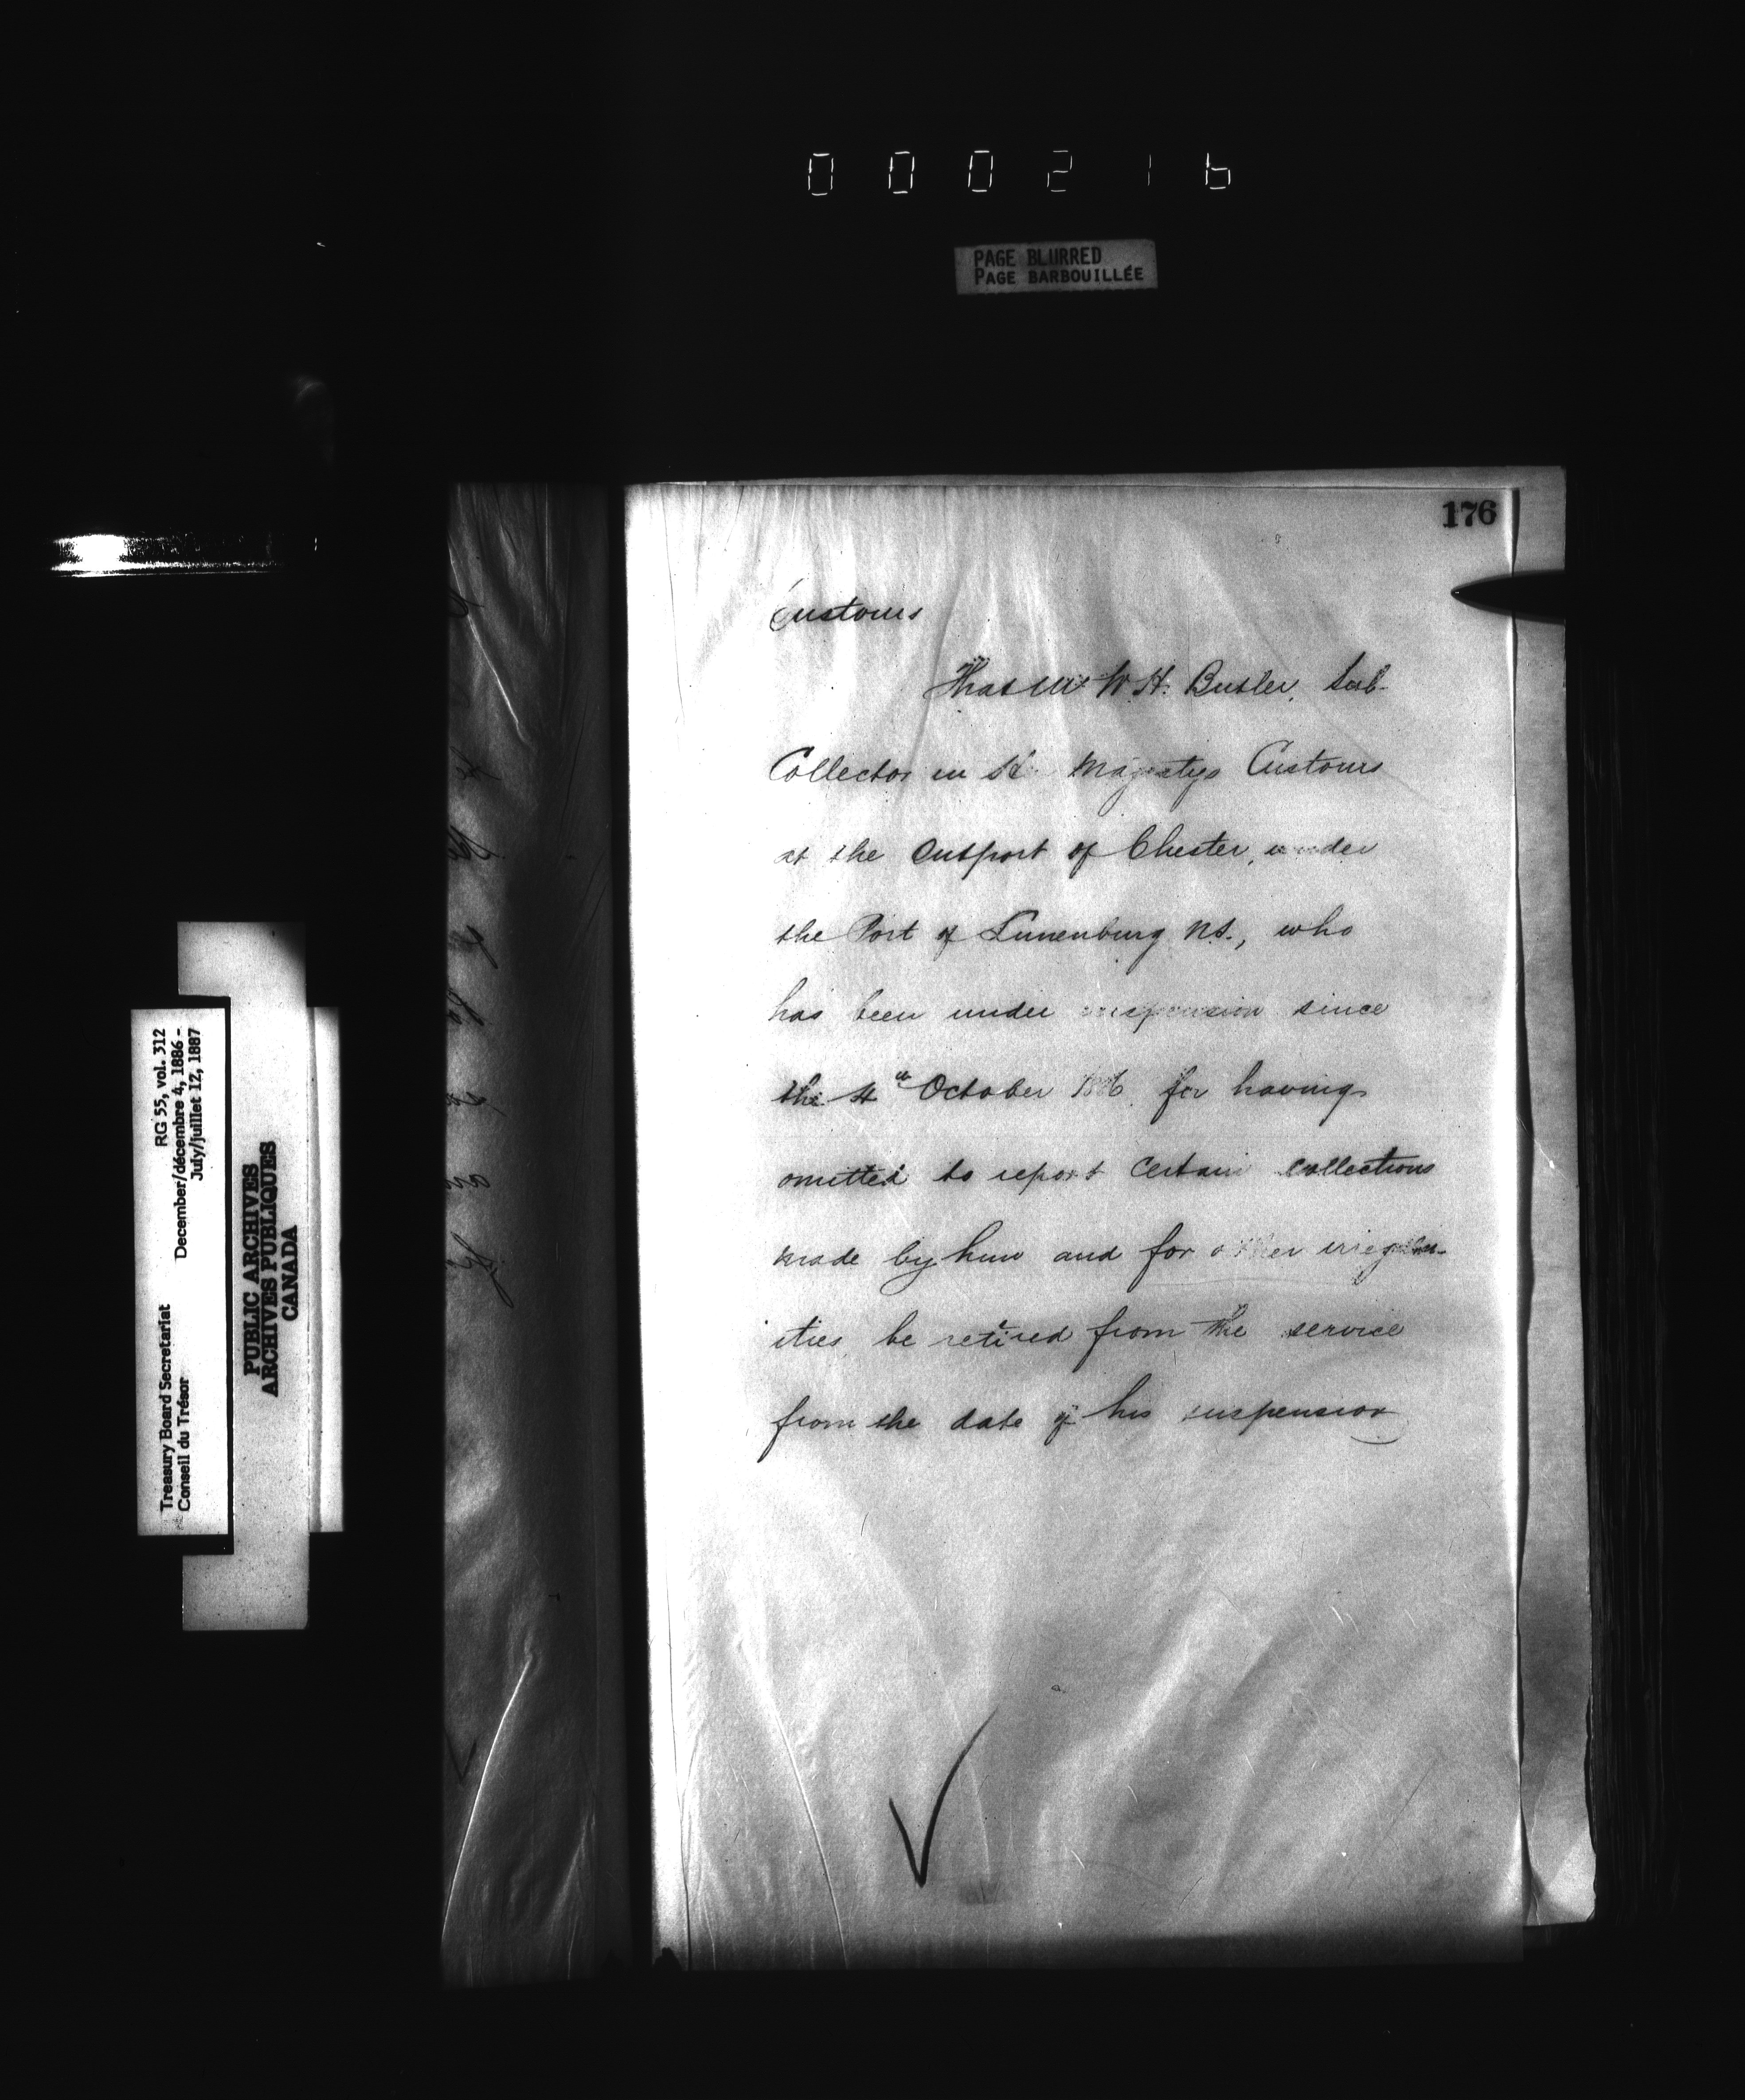 000216
PAGE BLURRED
PAGE BARBOUILLÉE
176
Customs
That Mr W. H. Butler, Sub-
Collector in H Majestys Customs
at the Outport of Chester, under
the Port of Lunenburg N.S., who
has been under suspension since
the 4th October 1886 for having
omitted to report certain collections
made by him and for other irregular-
ities, be retired from the service
from the date of his suspension
RG 55, vol. 312
December/décembre 4, 1886 -
July/juillet 12, 1887
Treasury Board Secretariat
Conseil du Trésor
PUBLIC ARCHIVES
ARCHIVES PUBLIQUES
CANADA